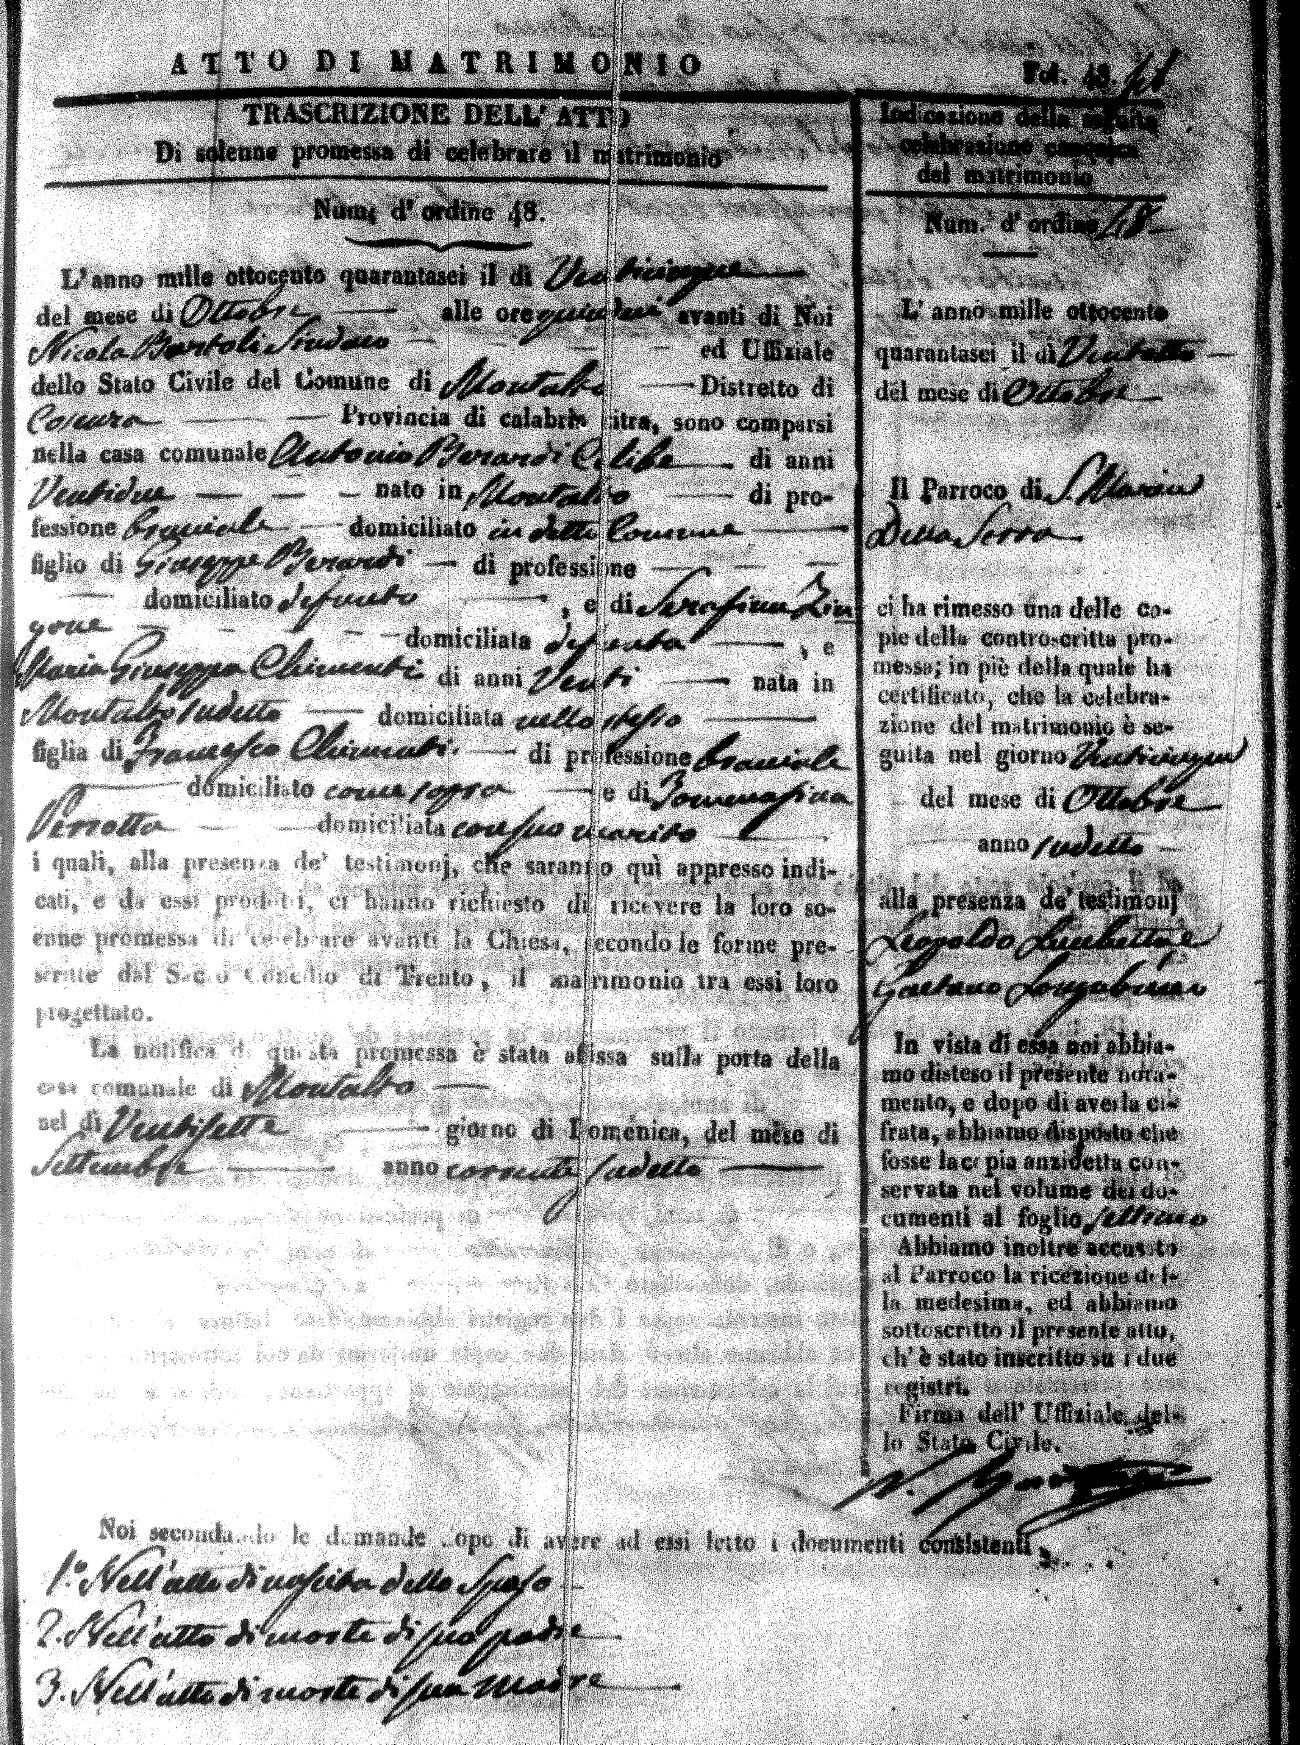 ATTO DI MATRIMONIO
Fol. 48.
TRASCRIZIONE DELL' ATTO
Di solenne promessa di celebrare il matrimonio
Num. d' ordine 48.
L'anno mille ottocento quarantasei il di Venticinque
del mese di Ottobre alle ore quindici avanti di Noi
Nicola Bartoli Sindaco ed Uffiziale
dello Stato Civile del Comune di Montalto Distretto di
Cosenza Provincia di calabria citra, sono comparsi
nella casa comunale Antonio Berardi Celibe di anni
Ventidue nato in Montalto di pro-
fessione bracciale domiciliato in detto Comune
figlio di Giuseppe Berardi di professione
domiciliato defunto , e di Serafina Zin
gone domiciliata defunta , e
Maria Giuseppa Chimenti di anni Venti nata in
Montalto sudetto domiciliata nello stesso
figlia di Francesco Chimenti di professione bracciale
domiciliato come sopra e di Tommasina
Perrotta domiciliata con suo marito
i quali, alla presenza de' testimonj, che saranno quì appresso indi-
cati, e da essi prodotti, ci hanno richiesto di ricevere la loro so-
enne promessa di celebrare avanti la Chiesa, secondo le forme pre-
scritte dal Sacro Concilio di Trento, il matrimonio tra essi loro
progettato.
La notifica di questa promessa è stata affissa sulla porta della
casa comunale di Montalto
nel dì Ventisette giorno di Domenica, del mese di
Settembre anno corrente sudetto
Noi secondando le domande dopo di avere ad essi letto i documenti consistenti
1.° Nell'atto di nascita dello Sposo
2. Nell'atto di morte di suo padre
3. Nell'atto di morte di sua madre
Indicazione della seguita
celebrazione canonica
del matrimonio
Num. d' ordine 48
L' anno mille ottocento
quarantasei il di Ventotto
del mese di Ottobre
Il Parroco di S. Maria
Della Serra
ci ha rimesso una delle co-
pie della controscritta pro-
messa; in piè della quale ha
certificato, che la celebra-
zione del matrimonio è se-
guita nel giorno Venticinque
del mese di Ottobre
anno sudetto
alla presenza de' testimonj
Leopoldo e
Gaetano
In vista di essa noi abbia-
mo disteso il presente nota-
mento, e dopo di averla ci-
frata, abbiamo disposto che
fosse la copia anzidetta con-
servata nel volume dei do-
cumenti al foglio settimo
Abbiamo inoltre accusato
al Parroco la ricezione del-
la medesima, ed abbiamo
sottoscritto il presente atto,
ch' è stato inscritto su i due
registri.
Firma dell' Uffiziale del-
lo Stato Civile.
N. Bartoli